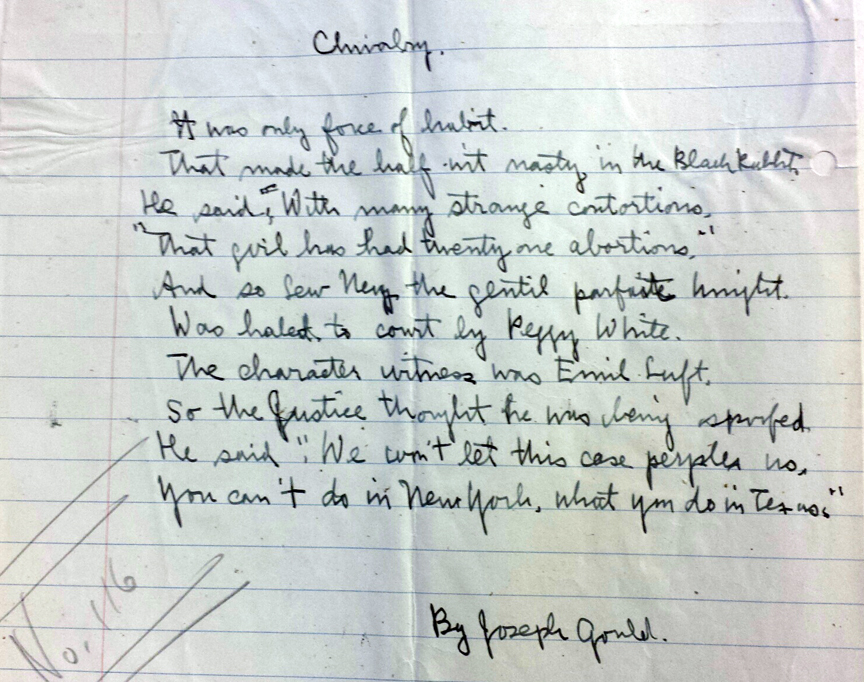 Chivalry.
It was only force of habit.
That made the half-wit nasty, in the Black Rabbit.
He said, With many strange contortions,
"That girl has had twenty one abortions,"
And so Lew Ney, the gentil parfaite knight.
Was haled, to court by Peggy White.
The character witness was Emil Luft.
So the Justice thought he was being spoofed.
He said "We won't let this case perplex us,
You can't do in New York, what you do in Texas."
By Joseph Gould.
No. 116